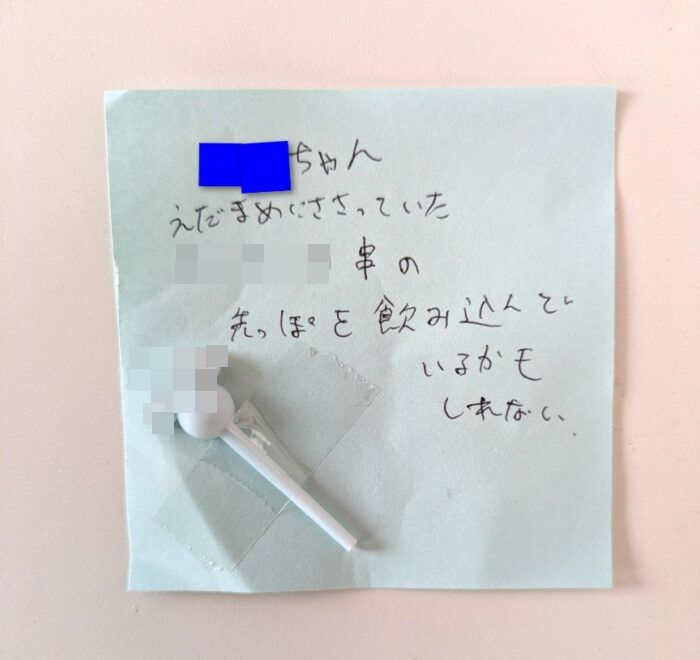 ちゃん
えだまめにささっていた
串の
先っぽを飲み込んで
いるかも
しれない、